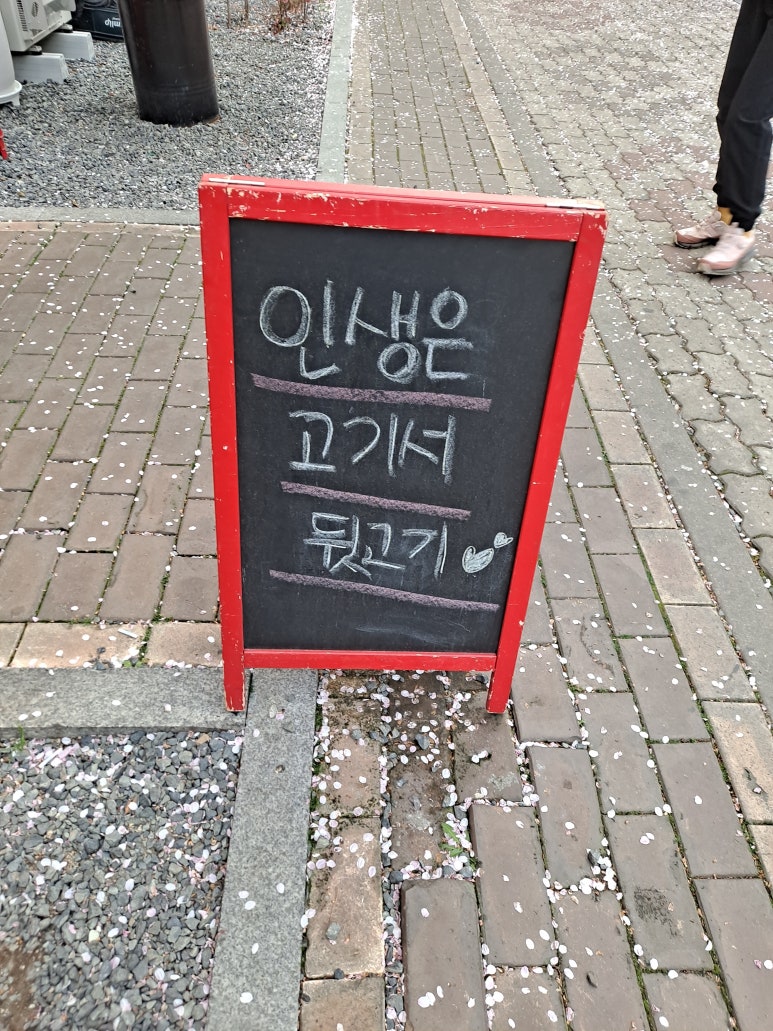 인생은
고기서
뒷고기